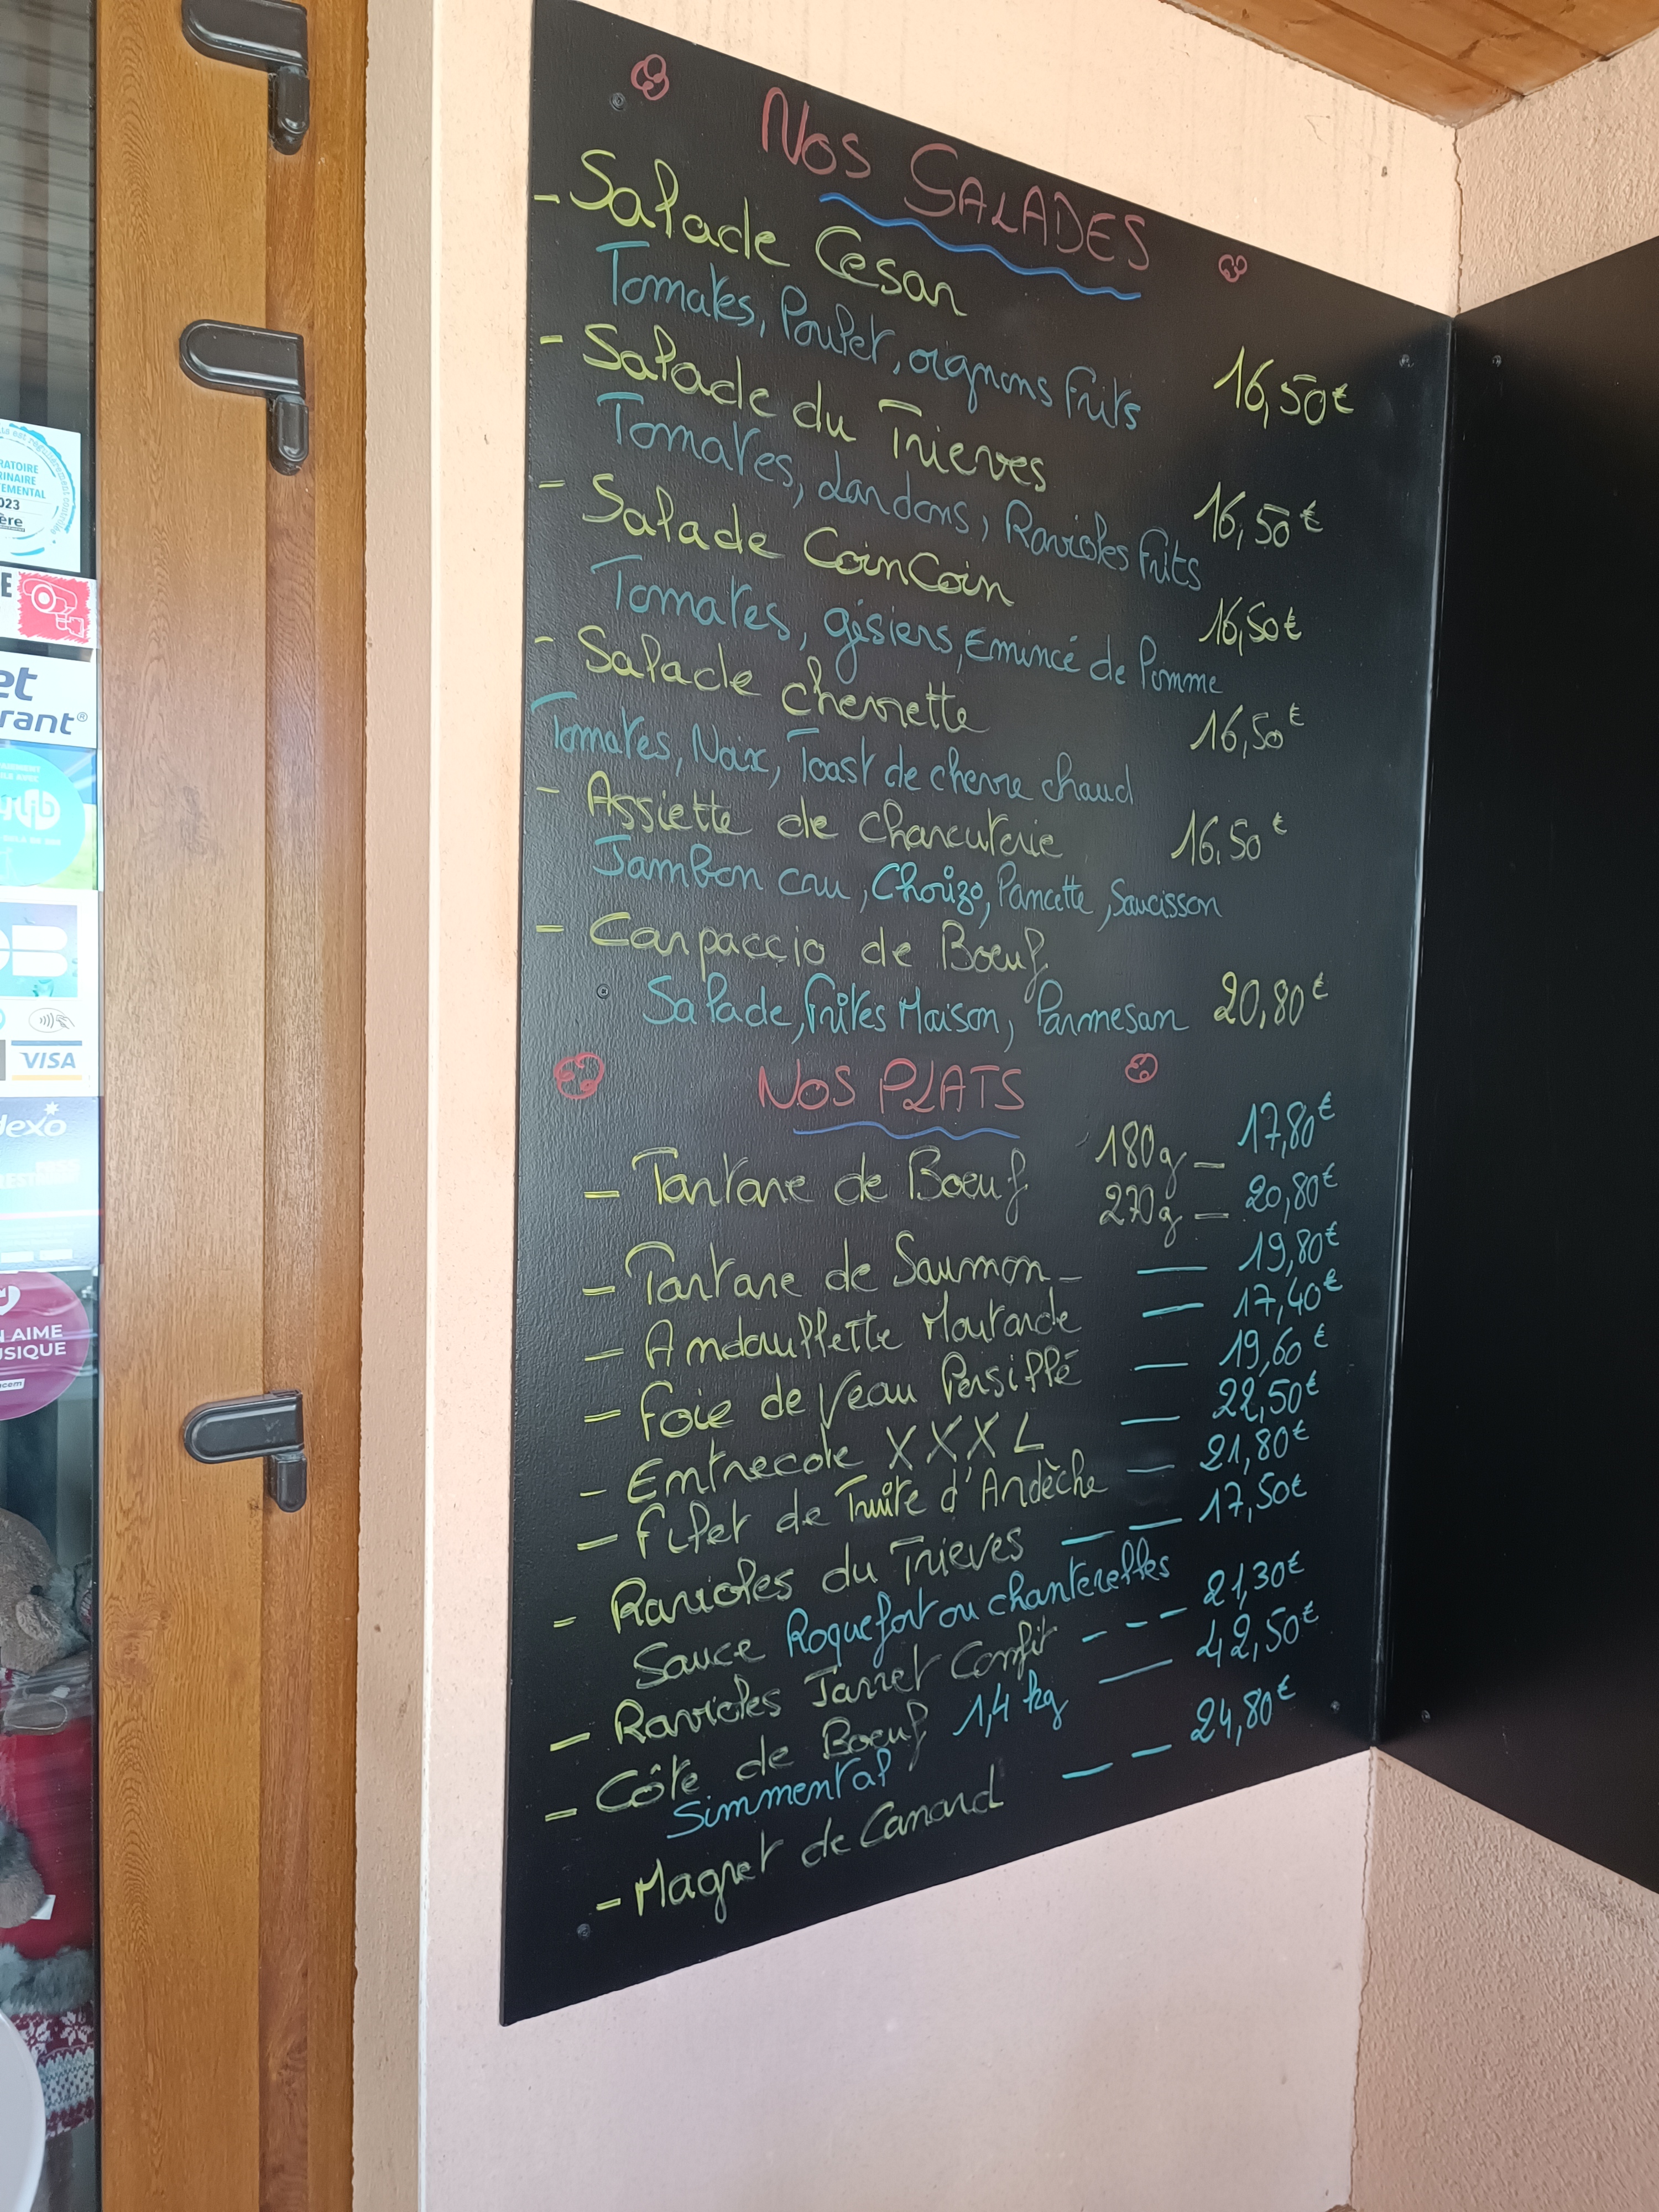 Nos SALADES
- Salade César
Tomates, Poulet, oignons frits 16,50€
- Salade du Trieves
Tomates, Lardons, Ravioles frits 16,50€
- Salade CoinCoin
Tomates, gésiers, Emincé de Pomme 16,50€
- Salade chevrette
Tomates, Noix, Toast de chevre chaud 16,50€
- Assiette de charcuterie 16.50€
Jambon cru, Chorizo, Pancette, Saucisson
- Carpaccio de Boeuf
Salade, frites Maison, Parmesan 20,80€
NOS PLATS
- Tartare de Boeuf 180g - 17,80€
270g - 20,80€
- Tartare de Saumon - 19,80€
- Andouillette Moutarde - 17,40€
- Foie de Veau Persillé - 19,60€
- Entrecote XXXL - 22,50€
- Filet de Truite d'Ardèche - 21,80€
- Ravioles du Trieves - - 17,50€
Sauce Roquefort ou chanterelles
- Ravioles Jarret Confit - - - 21,30€
- Côte de Boeuf 1,4 kg - 42,50€
Simmental
- Magret de Canard - - 24,80€
RATOIRE
023
ère
VISA
N AIME
USIQUE